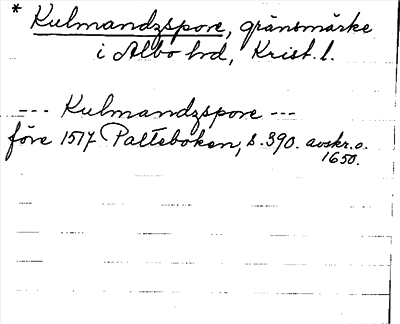 * Kulmandzspore, gränsmärke
i Albo hd, Krist. l.
--- Kulmandzspore ---
före 1517 Palteboken, s. 390. avskr. o.
1650.